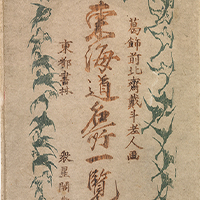 葛飾前北齋戴斗老人画
東海道名所一覧
東都書林
衆星閣